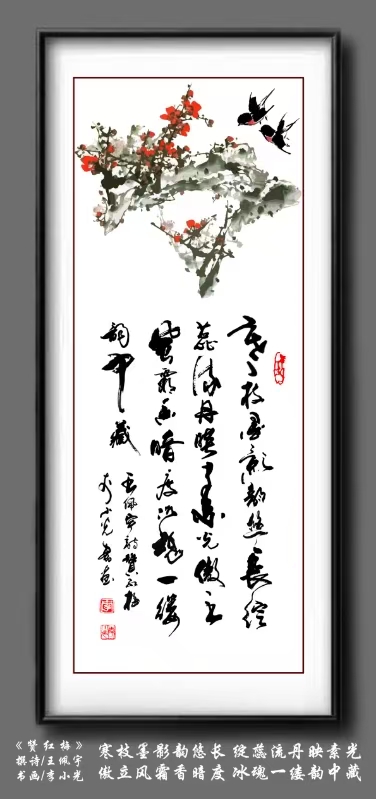 寒枝墨影韵悠长绽
蕊流丹映素光傲立
风霜香暗度冰魂一缕
韵中藏
王佩宇诗赞红梅
李小光书画
《赞红梅》
撰诗/王佩宇
书画/李小光
寒枝墨影韵悠长 绽蕊流丹映素光
傲立风霜香暗度 冰魂一缕韵中藏